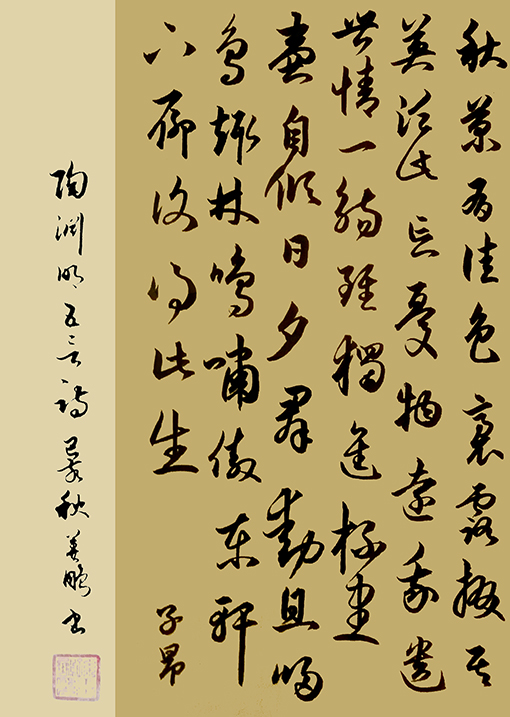 秋菊有佳色裛露掇其
英泛此忘憂物遠我遺
世情一觴雖獨進杯盡
壺自傾日夕群動息歸
鳥趨林鳴嘯傲東軒
下聊復得此生
子昂
陶淵明五言詩己亥秋姜鵬書